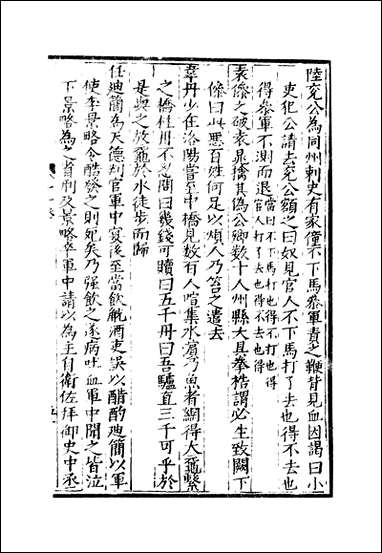 陸兗公為同州刺史有家僮不下馬參軍責之鞭背見血因謁曰小
吏犯公請去兗公頷之曰奴見官人不下馬打了去也得不去也
得參軍不測而退官人打了去也得不去也得
袁傪之破袁晁擒其偽公卿數十人州縣大具拲楛謂必生致闕下
傪曰此惡百姓何足以煩人乃笞之遣去
韋丹少在洛陽嘗至中橋見數百人喧集水濱乃魚者網得大黿繫
之橋柱丹不忍問曰幾錢可贖曰五千丹曰吾驢直三千可乎於
是與之放黿於水徒步而歸
任迪簡為天德判官軍中宴後至當飲觥酒吏誤以醋酌迪簡以軍
使李景略令酷發之則死矣乃强飲之遂病吐血軍中聞之皆泣
下景略為之省刑及景略卒軍中請以為主自衛佐拜御史中丞